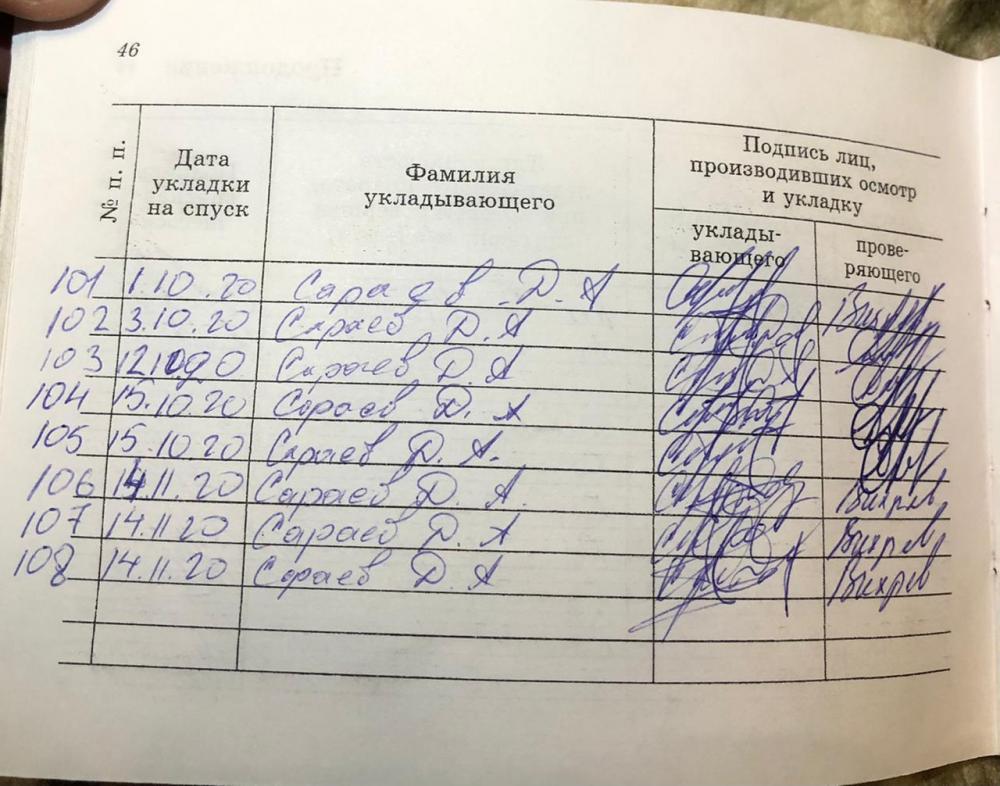 46
№ п. п.
Дата
укладки
на спуск
Фамилия
укладывающего
Подпись лиц,
производивших осмотр
и укладку
уклады-
вающего
прове-
ряющего
101 1.10.20 Сараев Д. А
102 3.10.20 Сараев Д. А
103 12.10.20 Сараев Д. А
104 15.10.20 Сараев Д. А
105 15.10.20 Сараев Д. А.
106 14.11.20 Сараев Д. А. Вихрев
107 14.11.20 Сараев Д. А Вихрев
108 14.11.20 Сараев Д. А Вихрев